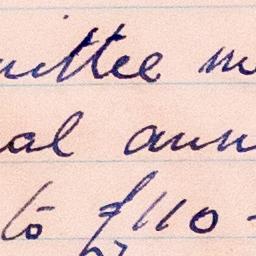 mittee m
al ann
to £110-